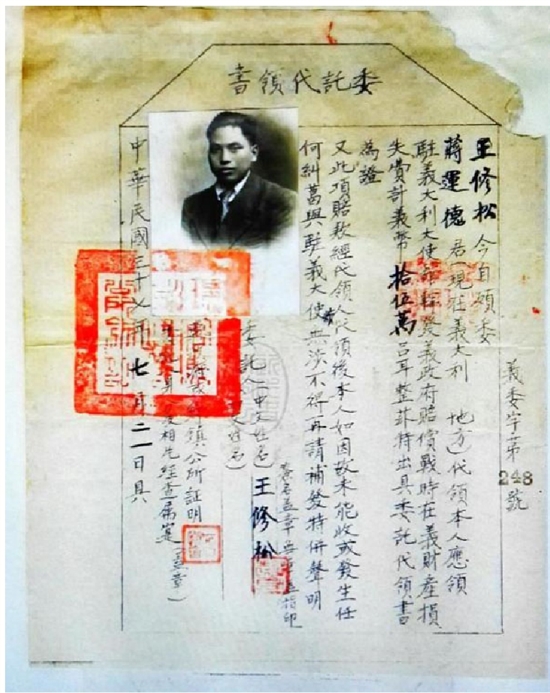 委託代領書
義委字第248號
王修松今自願委
蔣運德君(現在義大利 地方)代領本人應領
駐義大利大使館轉發義政府賠償戰時在義財產損
失費計義幣拾伍萬呂耳整茲特出具委託代領書
為證
又此項賠款經代領人代領後本人如因故未能收或發生任
何糾葛與駐義大使無涉不得再請補發特併聲明
委託人(中文姓名)王修松
簽名蓋章
指印
鎮公所証明
相片經查屬實(蓋章)
中華民國三十七年七月二一日具